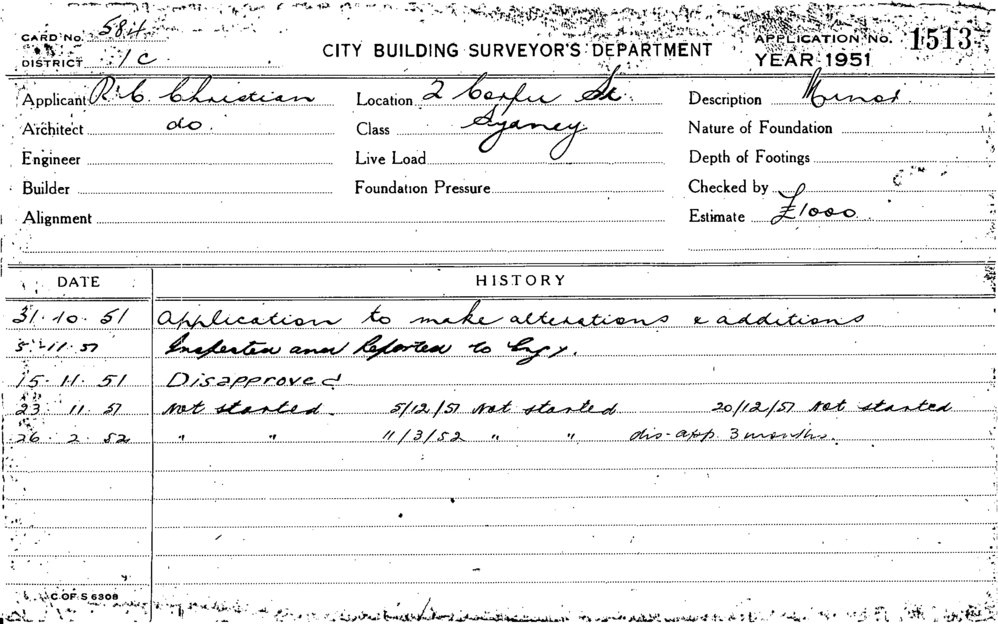 CARD No. 584
DISTRICT 1C
CITY BUILDING SURVEYOR'S DEPARTMENT
APPLICATION No. 1513
YEAR 1951
Applicant R. C. Christian Location 2 Corfu St Description Minor
Architect do. Class Sydney Nature of Foundation
Engineer Live Load Depth of Footings
Builder Foundation Pressure Checked by
Alignment Estimate £1000
DATE HISTORY
31.10.51 Application to make alterations & additions
5.11.51 Inspected and Reported to
15.11.51 Disapproved
23.11.51 Not started. 5/12/51 Not started 20/12/51 Not started
26.2.52 " " 11/3/52 " " dis-app. 3 months.
C OF S 6308